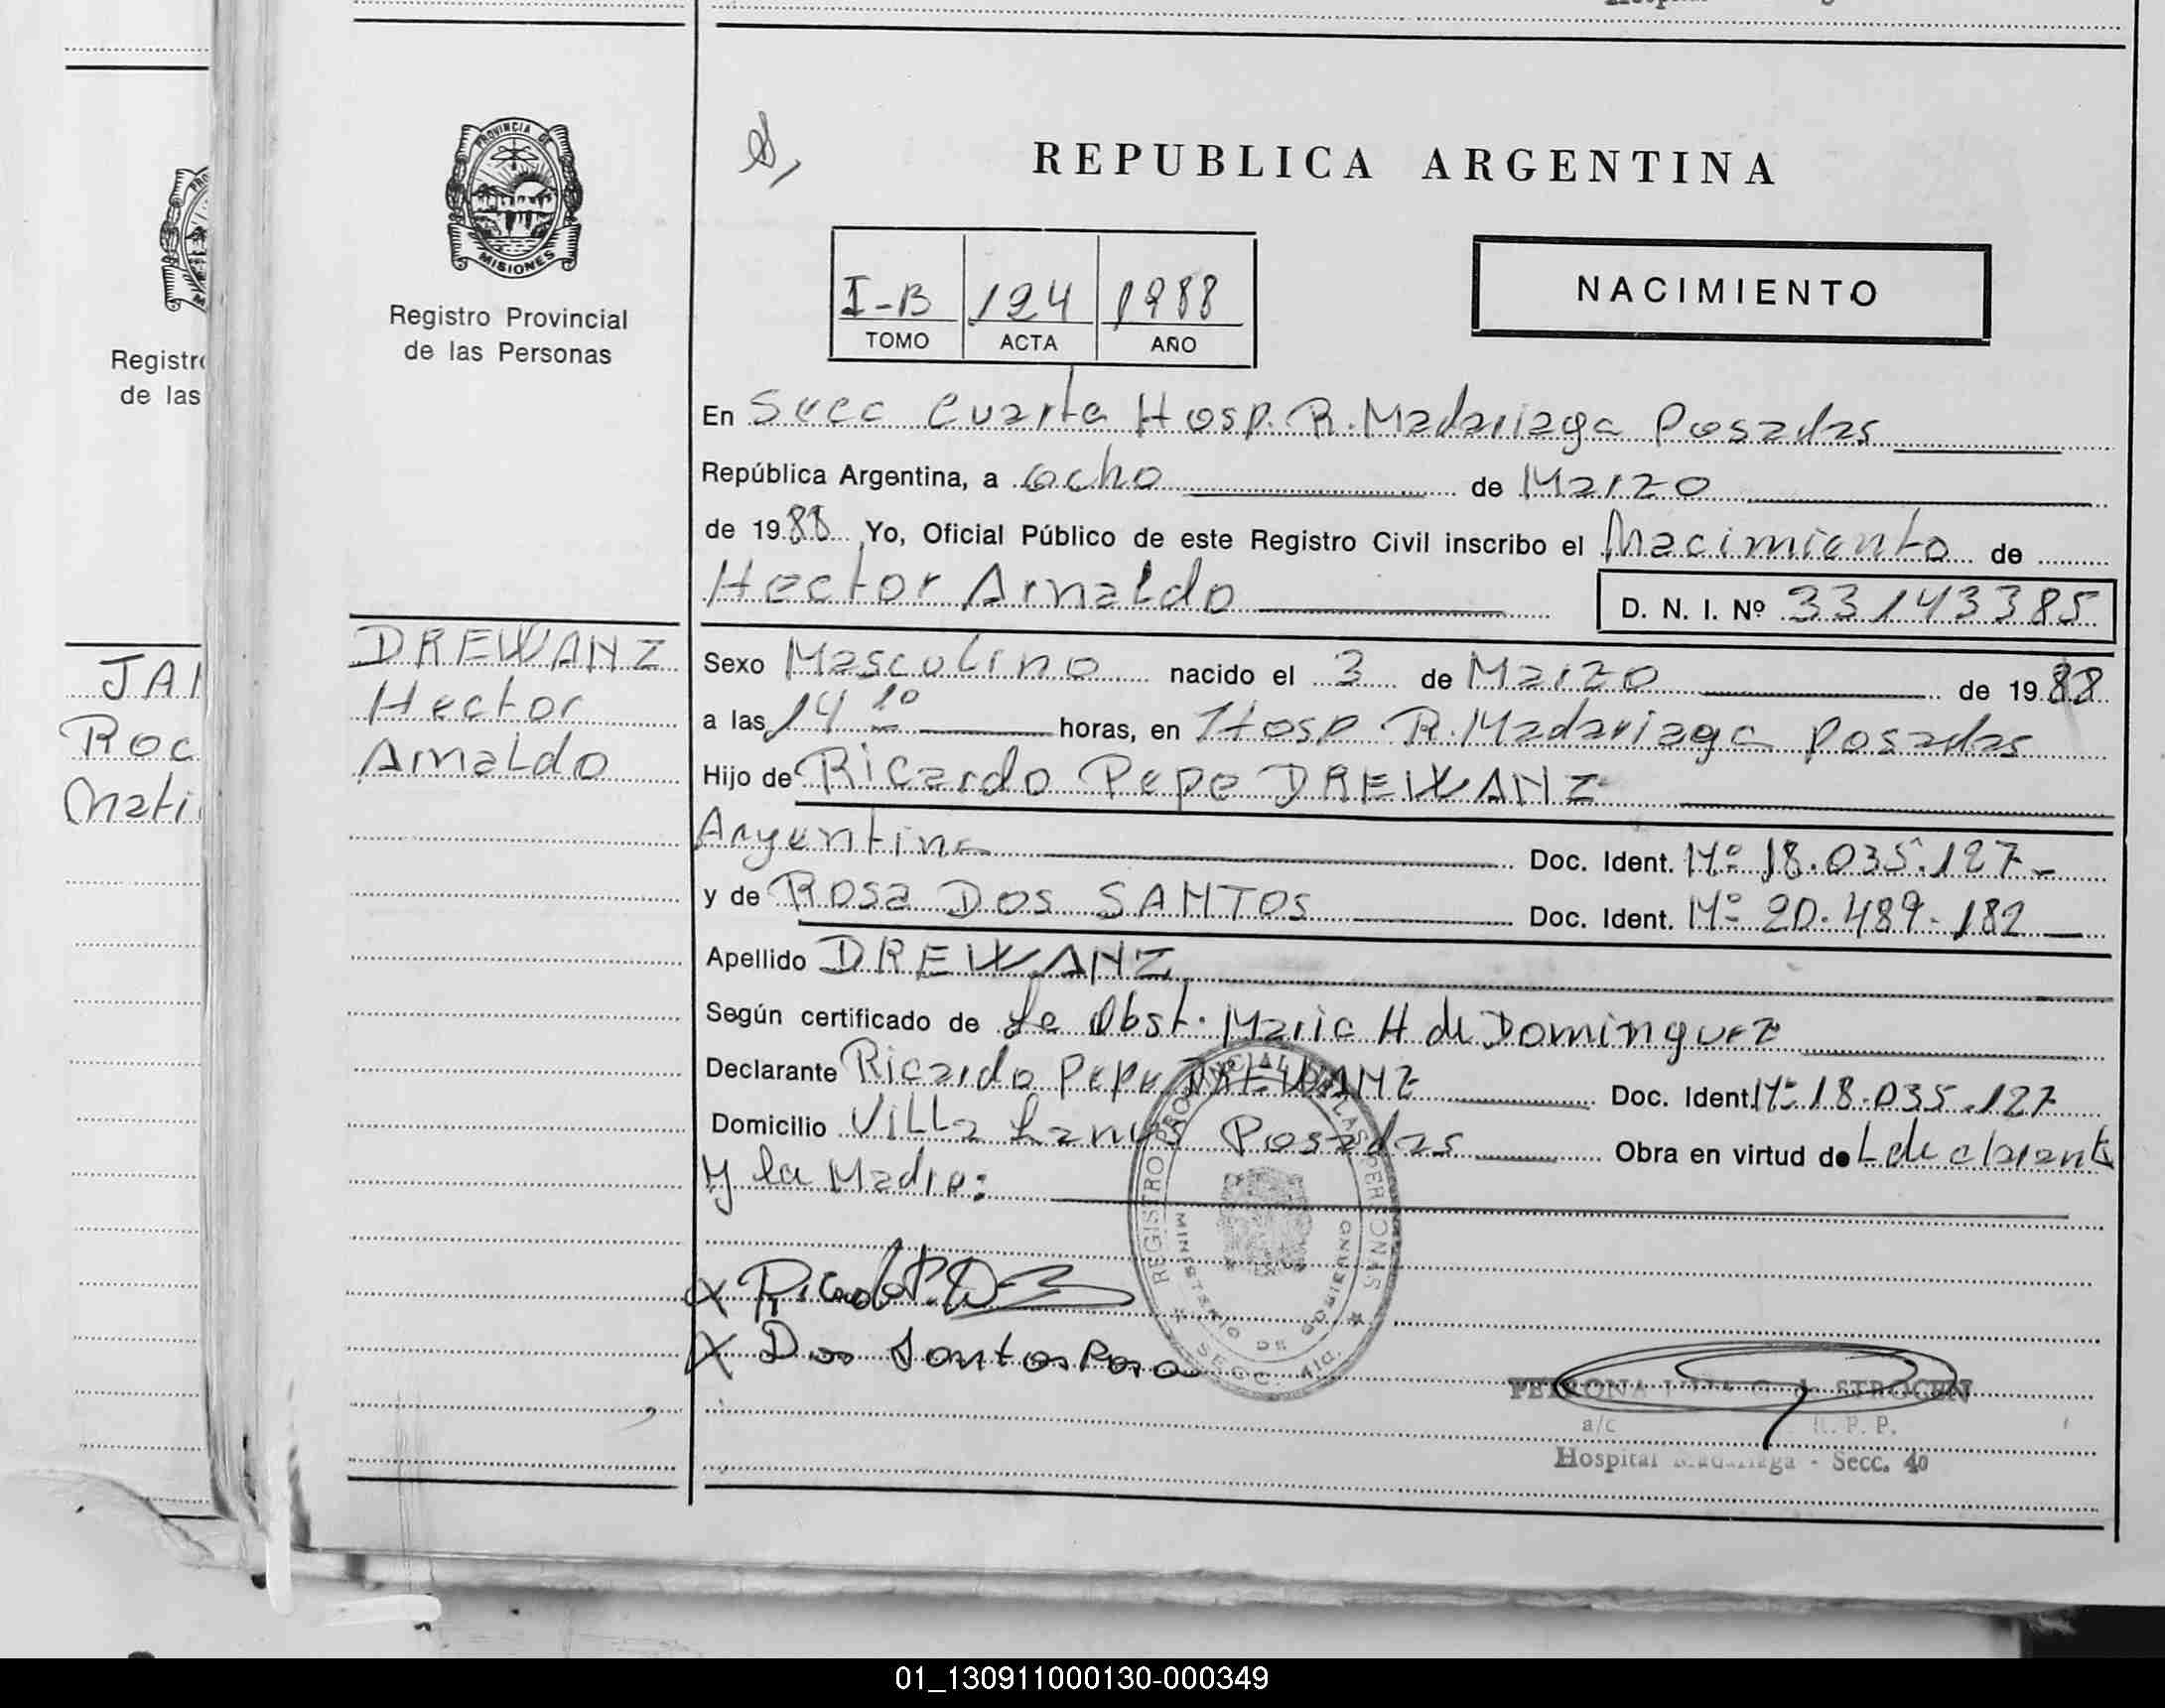 PROVINCIA DE
MISIONES
Registro Provincial
de las Personas
Registr
de las
JAN
Roc
Mati
DREWANZ
Hector
Arnaldo
REPUBLICA ARGENTINA
I-B 124 1988
TOMO ACTA AÑO
NACIMIENTO
En Secc Cuarta Hosp. R. Madariaga Posadas
República Argentina, a ocho de Marzo
de 1988 Yo, Oficial Público de este Registro Civil inscribo el Nacimiento de
Hector Arnaldo D. N. I. Nº 33143385
Sexo Masculino nacido el 3 de Marzo de 1988
a las 14 10 horas, en Hosp R. Madariaga Posadas
Hijo de Ricardo Pepe DREWANZ
Argentina Doc. Ident. Nº 18.035.127-
y de Rosa DOS SANTOS Doc. Ident. Nº 20.489.182
Apellido DREWANZ
Según certificado de La Obst. Maria H de Dominguez
Declarante Ricardo Pepe DREWANZ Doc. Ident. Nº 18.035.127
Domicilio Villa Lanus Posadas Obra en virtud de L declarante
y la Madre:
REGISTRO PROVINCIAL DE LAS PERSONAS
MINISTERIO DE GOBIERNO
SECC. 4ta.
X Ricardo P. D
X Dos Santos Rosa
PETRONA STROGEN
a/c R. P. P.
Hospital Madariaga - Secc. 40
01_130911000130-000349